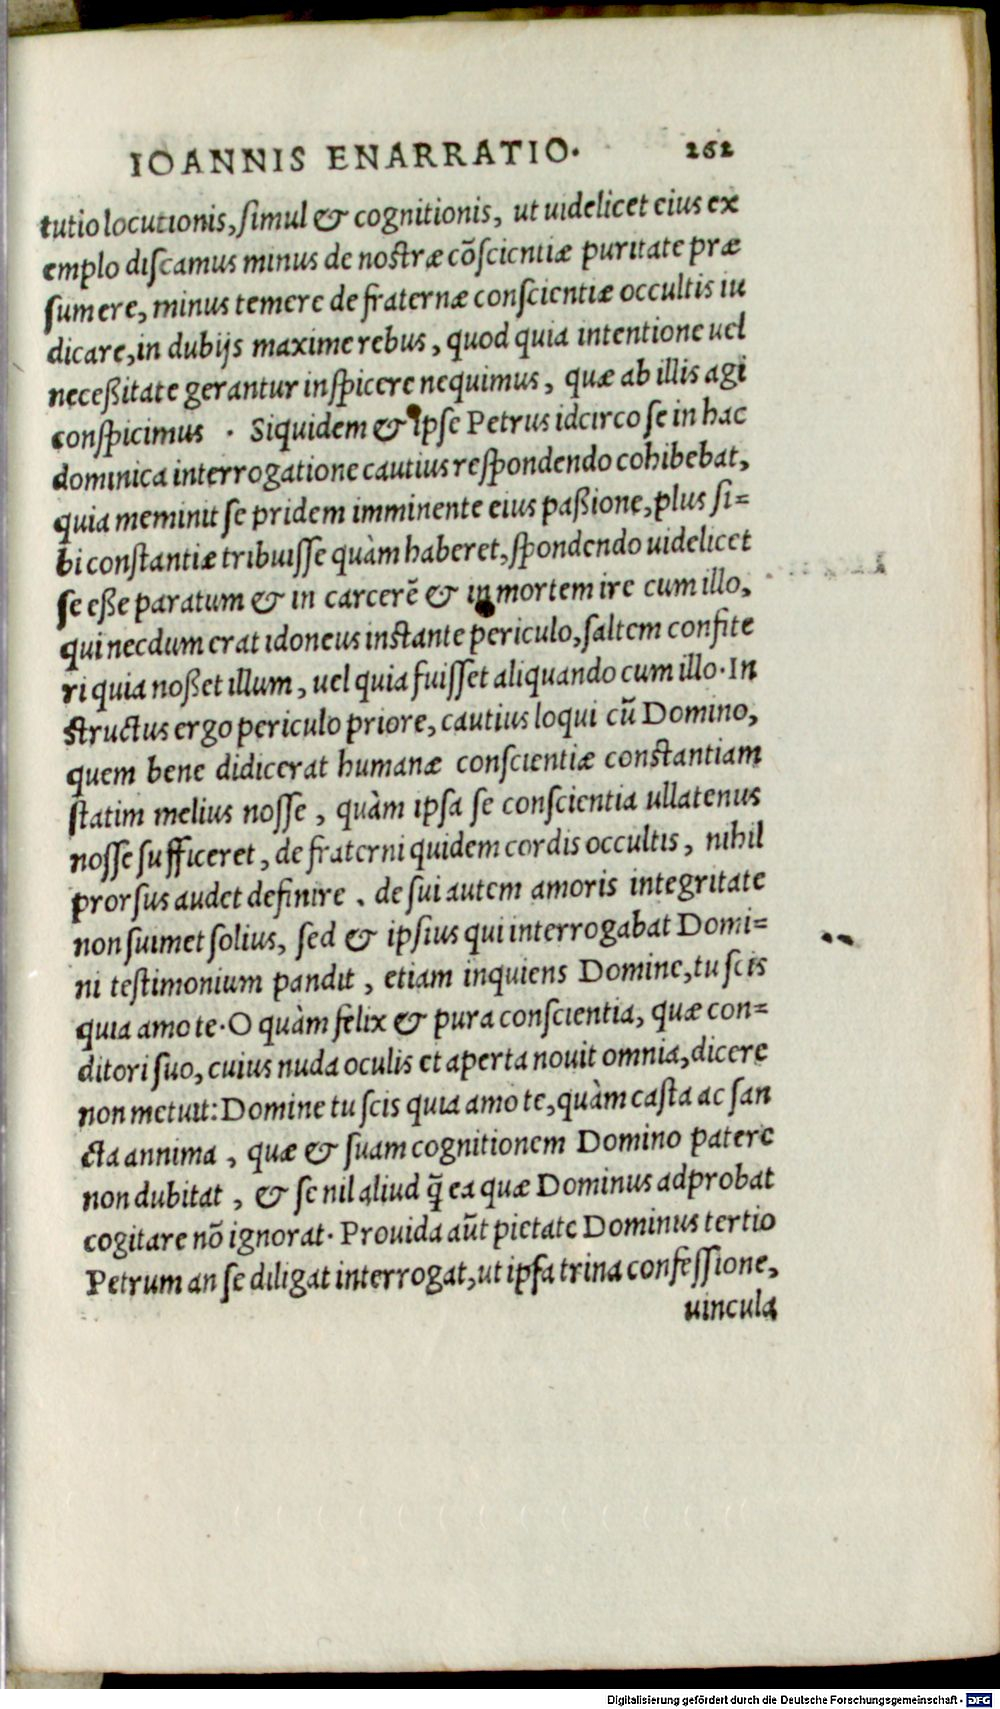 IOANNIS ENARRATIO. 262
tutio locutionis, ſimul & cognitionis, ut uidelicet eius ex
emplo diſcamus minus de noſtræ cõſcientiæ puritate præ
ſumere, minus temere de fraternæ conſcientiæ occultis iu
dicare, in dubijs maxime rebus, quod quia intentione uel
neceßitate gerantur inſpicere nequimus, quæ ab illis agi
conſpicimus . Siquidem & ipſe Petrus idcirco ſe in hac
dominica interrogatione cautius reſpondendo cohibebat,
quia meminit ſe pridem imminente eius paßione, plus ſi=
bi conſtantiæ tribuiſſe quàm haberet, ſpondendo uidelicet
ſe eße paratum & in carcerẽ & in mortem ire cum illo,
qui necdum erat idoneus inſtante periculo, ſaltem confite
ri quia noßet illum, uel quia fuiſſet aliquando cum illo. In
ſtructus ergo periculo priore, cautius loqui cũ Domino,
quem bene didicerat humanæ conſcientiæ conſtantiam
ſtatim melius noſſe, quàm ipſa ſe conſcientia ullatenus
noſſe ſufficeret, de fraterni quidem cordis occultis, nihil
prorſus audet definire . de ſui autem amoris integritate
non ſuimet ſolius, ſed & ipſius qui interrogabat Domi=
ni teſtimonium pandit, etiam inquiens Domine, tu ſcis
quia amo te. O quàm felix & pura conſcientia, quæ con=
ditori ſuo, cuius nuda oculis et aperta nouit omnia, dicere
non metuit: Domine tu ſcis quia amo te, quàm caſta ac ſan
cta annima, quæ & ſuam cognitionem Domino patere
non dubitat, & ſe nil aliud q̃ ea quæ Dominus adprobat
cogitare nõ ignorat. Prouida aũt pietate Dominus tertio
Petrum an ſe diligat interrogat, ut ipſa trina confeſſione,
uincula
Digitalisierung gefördert durch die Deutsche Forschungsgemeinschaft - DFG